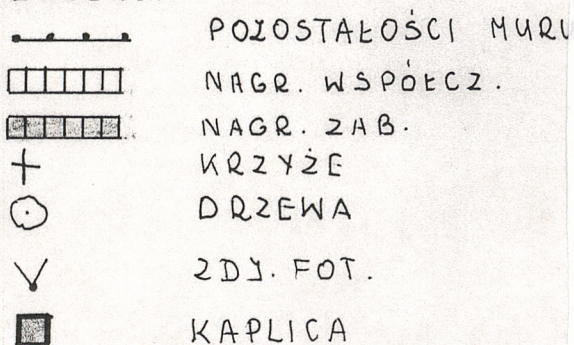 POZOSTAŁOŚCI MURU
NAGR. WSPÓŁCZ.
NAGR. ZAB.
KRZYŻE
DRZEWA
ZDJ. FOT.
KAPLICA